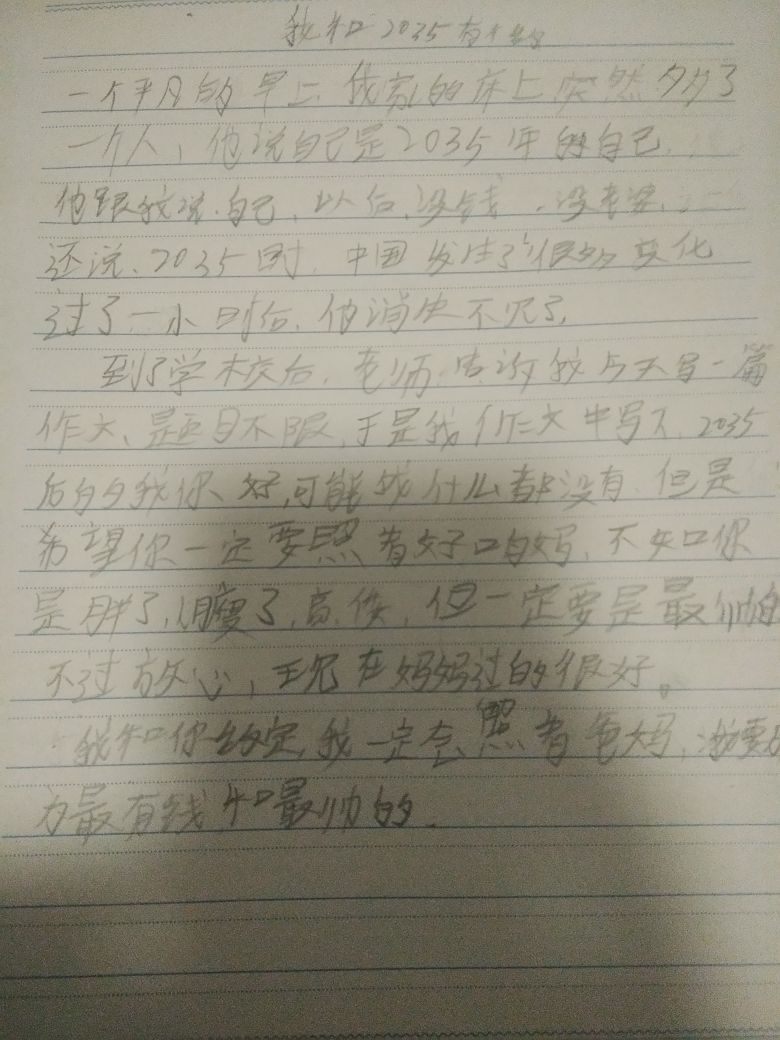 我和2035有个约
一个平凡的早上,我家的床上突然多了
一个人,他说自己是2035年的自己.
他跟我说.自己,以后,没钱.没老婆.
还说、2035时.中国发生了很多变化
过了一小时后.他消失不见了.
到了学校后.老师.告诉我今天写一篇
作文、题目不限,于是我作文中写下.2035
后的我你、好,可能我什么都没有.但是
希望你一定要照着好口妈.不知你
是胖了,瘦了,高,矮,但一定要是最帅的
不过放心,现在妈妈过的很好。
我和你约定,我一定会照着爸妈,我要
为最有钱和最帅的.